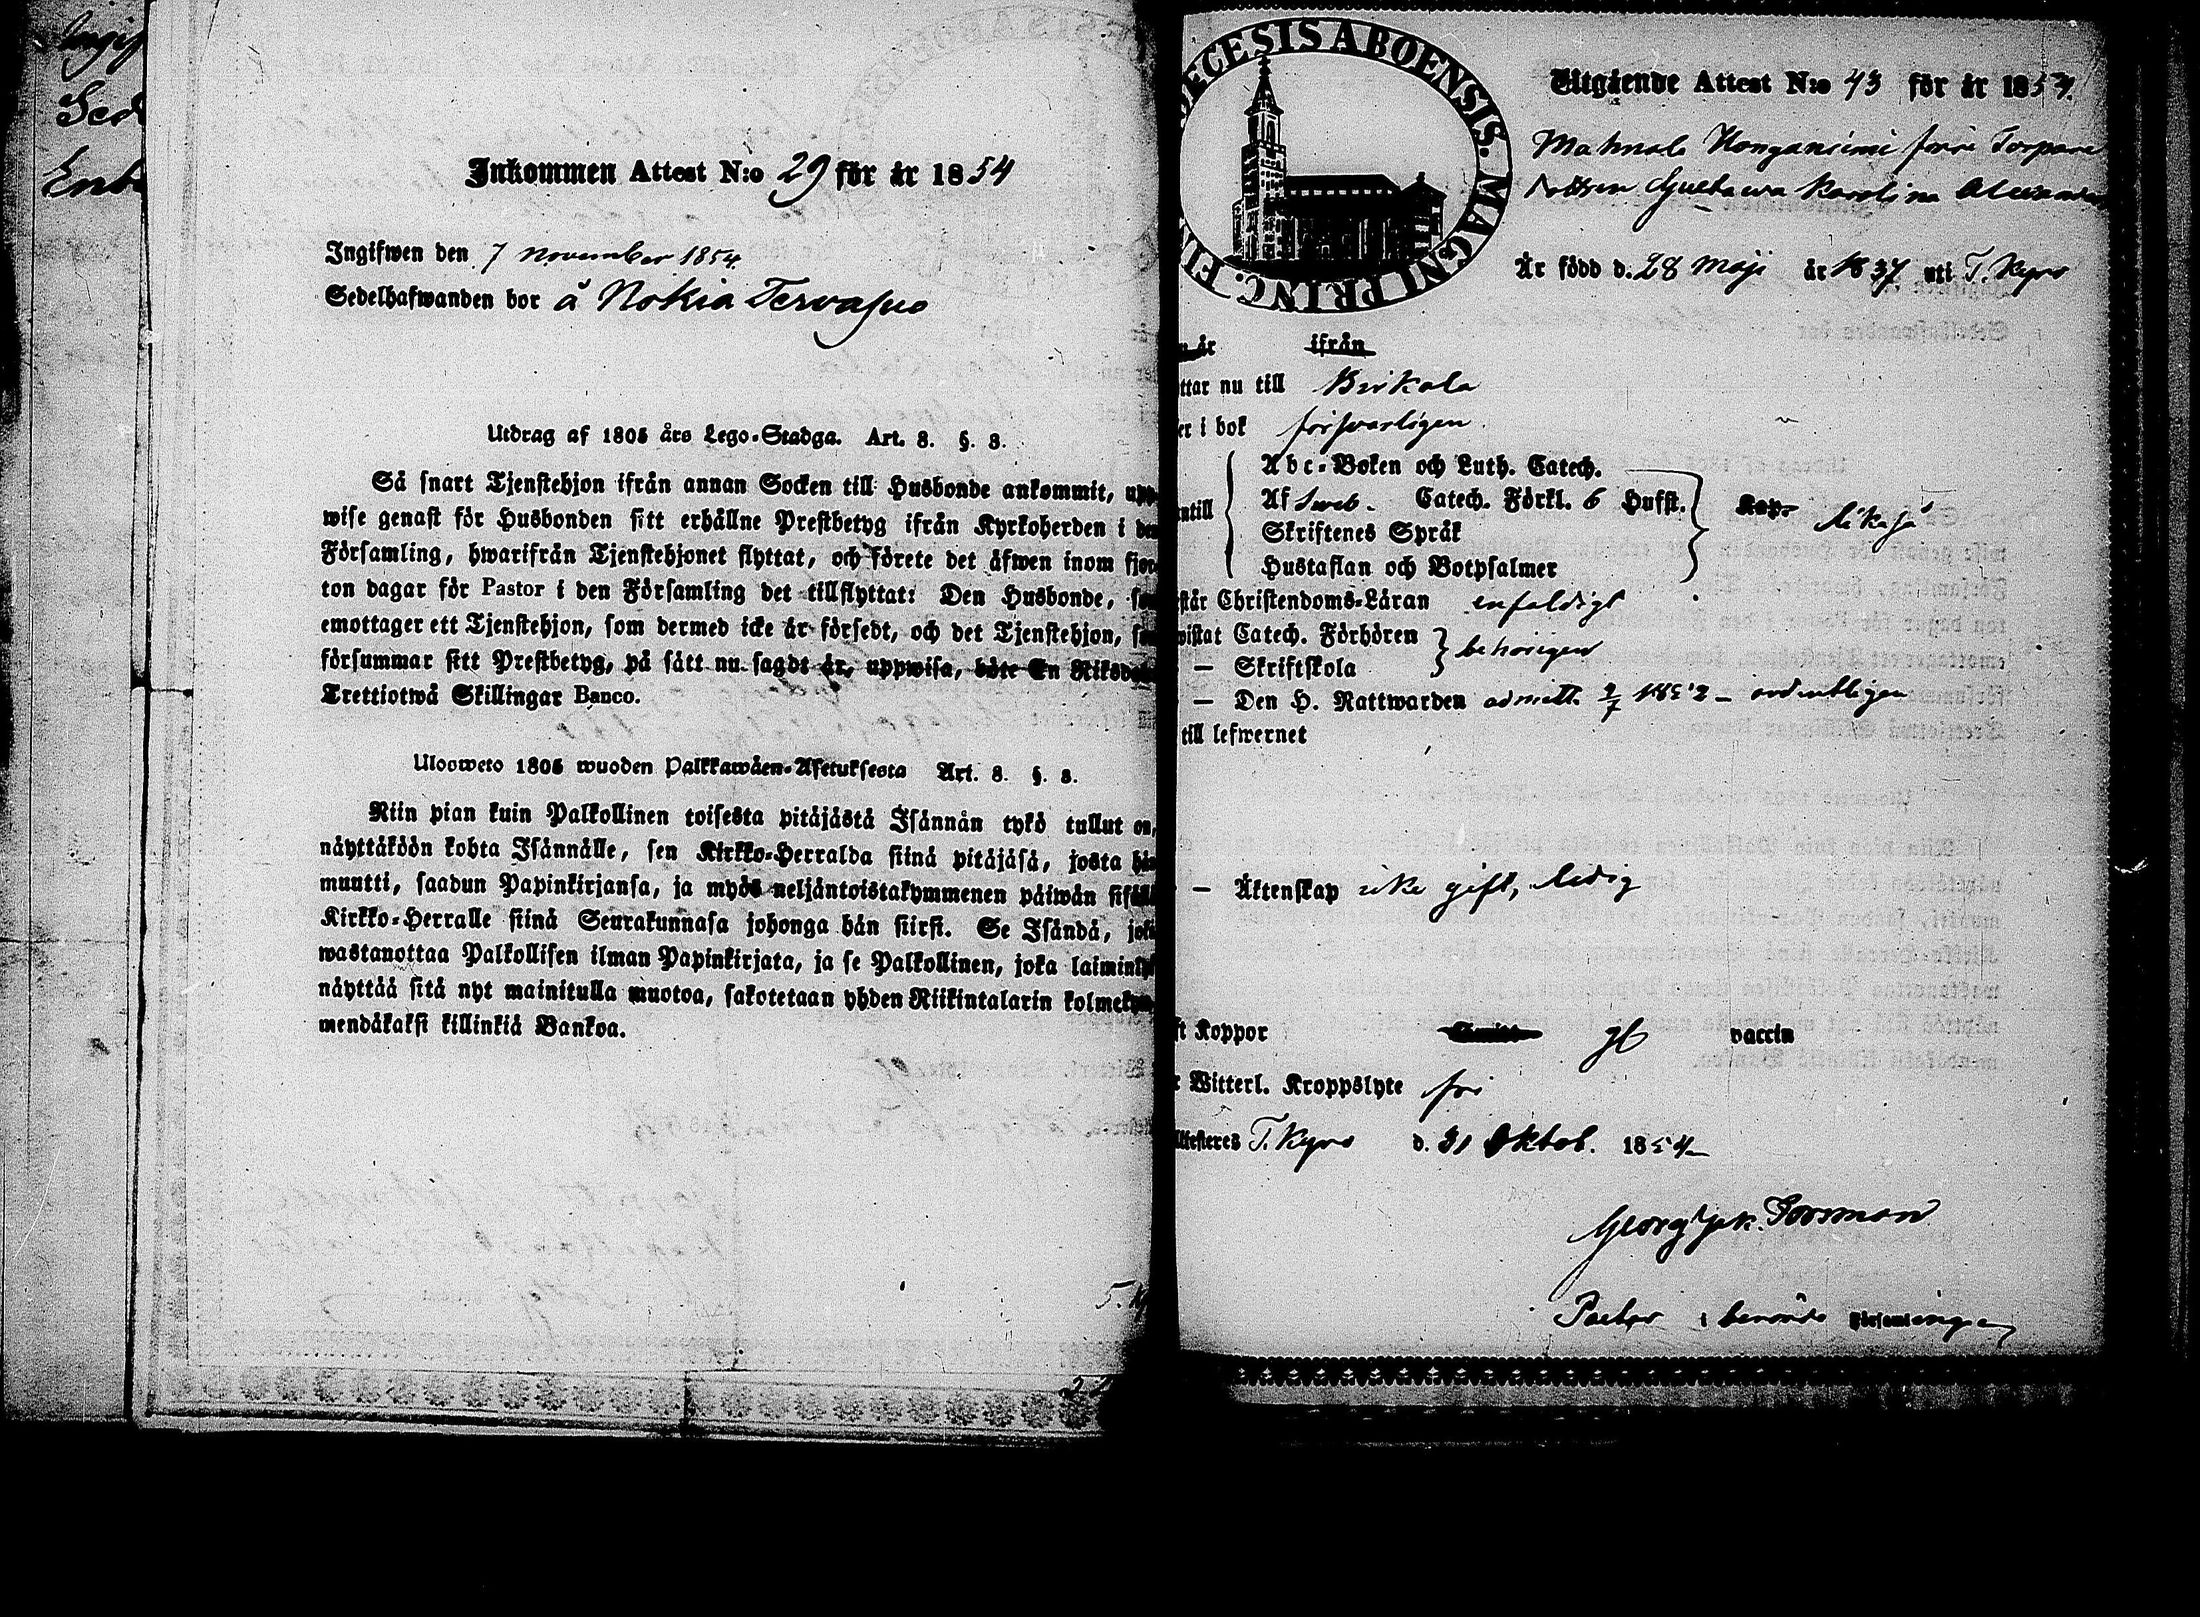 Ingif
Sed
Enb
Inkommen Attest N:o 29 för år 1854
Ingifwen den 7 november 1854.
Sedelhafwanden bor å Nokia Tervasuo
Utdrag af 1805 års Lego-Stadga. Art. 8. §. 8.
Så snart Tjenstehjon ifrån annan Socken till Husbonde ankommit, upp-
wise genast för Husbonden sitt erhållne Prestbetyg ifrån Kyrkoherden i den
Församling, hwarifrån Tjenstehjonet flyttat, och förete det äfwen inom fjor-
ton dagar för Pastor i den Församling det tillflyttat: Den Husbonde, som
emottager ett Tjenstehjon, som dermed icke är försedt, och det Tjenstehjon, som
försummar sitt Prestbetyg, på sätt nu sagdt är, uppwisa, böte En Riksdaler
Trettiotwå Skillingar Banco.
Ulosweto 1805 wuoden Palkkawäen-Asetuksesta Art. 8. §. 8.
Niin pian kuin Palkollinen toisesta pitäjästä Isännän tykö tullut on,
näyttäköön kohta Isännälle, sen Kirkko-Herralda siinä pitäjäsä, josta hän
muutti, saadun Papinkirjansa, ja myös neljäntoistakymmenen päiwän sisällä
Kirkko-Herralle siinä Seurakunnasa johonga hän siirsi. Se Isändä, joka
wastanottaa Palkollisen ilman Papinkirjata, ja se Palkollinen, joka laiminlyö
näyttää sitä nyt mainitulla muotoa, sakotetaan yhden Riikintalarin kolmekym-
mendäkaksi killinkiä Bankoa.
DECESIS ABOENSIS. MAGNI PRINC. FI
Utgående Attest N:o 43 för år 1854.
Mahnala Honganiemi förre Torpare
dottren Gustawa Karolina Alexand
Är född d. 28 Maji år 1837 uti T. Kyro
n år ifrån
ttar nu till Birkala
er i bok försvarligen
Abc-Boken och Luth. Catech.
ntill Af Sweb. Catech. Förkl. 6 Hufst. Kap. likaså
Skriftenes Språk
Hustaflan och Botpsalmer
står Christendoms-Läran enfaldigt
wistat Catech. Förhören behörigen
— Skriftskola
— Den H. Nattwarden admitt. 2/7 1852 – ordentligen
till lefwernet
— Äktenskap icke gift, ledig
ft Koppor vaccin
r Witterl. Kroppslyte fri
ttesteres T. Kyro d. 31 Oktob. 1854
Georg Forsman
Pastor i benämde Församlingen